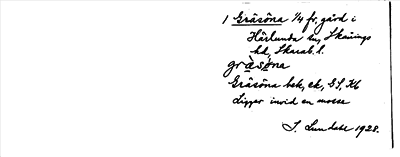 1 Gräsöna 1/4 fr. gård i
Härlunda sn, Skånings
hd, Skarab. l.
gräsöna
Gräsöna bek, ek, GS, Kb
Ligger invid en mosse
S. Lundahl 1928.